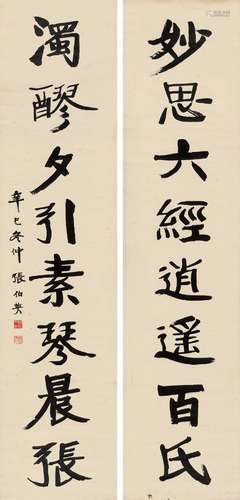 妙思六經逍遙百氏
濁醪夕引素琴晨張
辛巳冬仲 張伯英